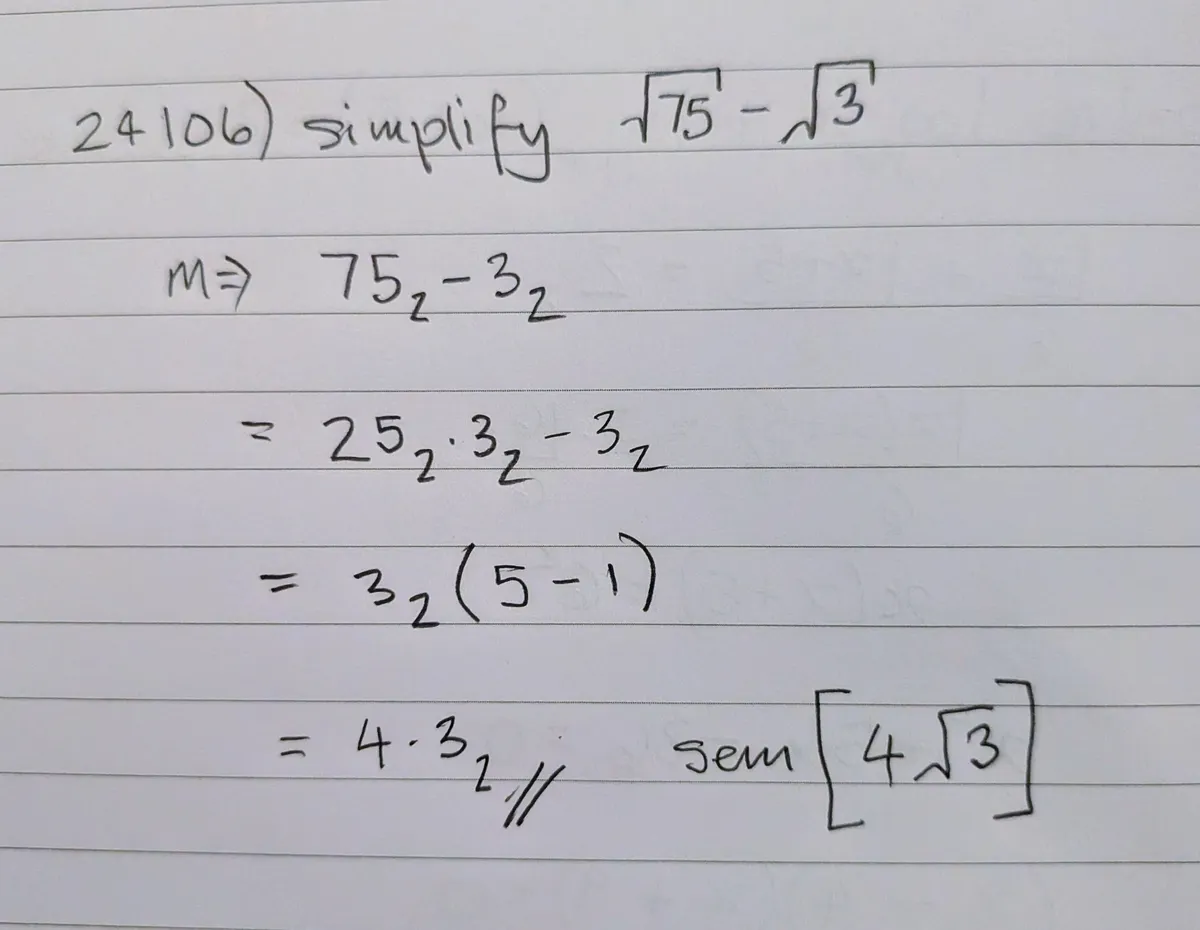 24106) simplify √75 - √3
m⇒ 75₂ - 3₂
= 25₂·3₂ - 3₂
= 3₂(5-1)
= 4·3₂// sem [4√3]